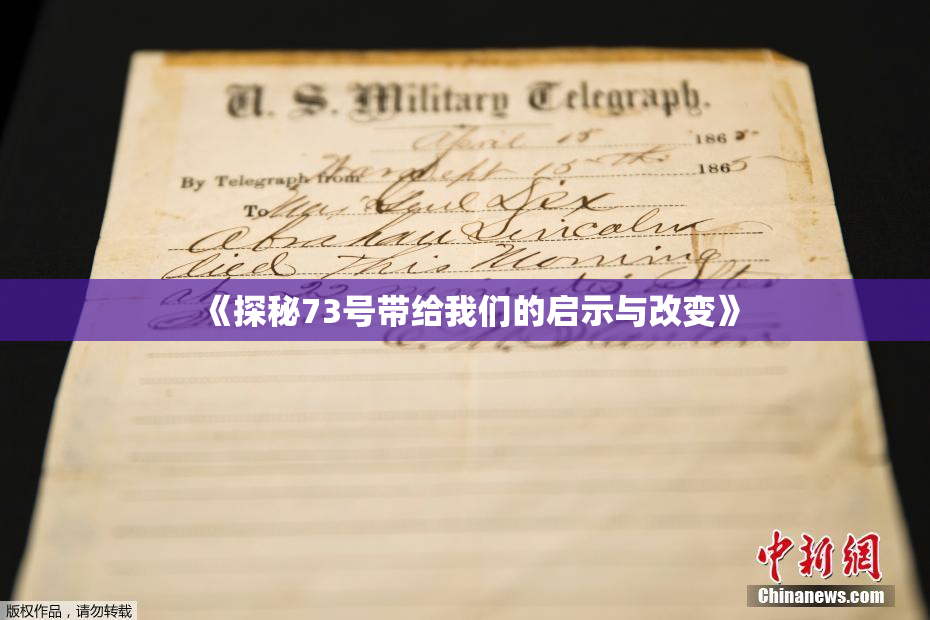 U. S. Military Telegraph.
April 15 1865
By Telegraph from War Dept 15th 1865
To Maj Genl Dix
Abraham Lincoln
died This Morning
at 22 minutes after
《探秘73号带给我们的启示与改变》
E. M. Stanton
中新网
Chinanews.com
版权作品，请勿转载